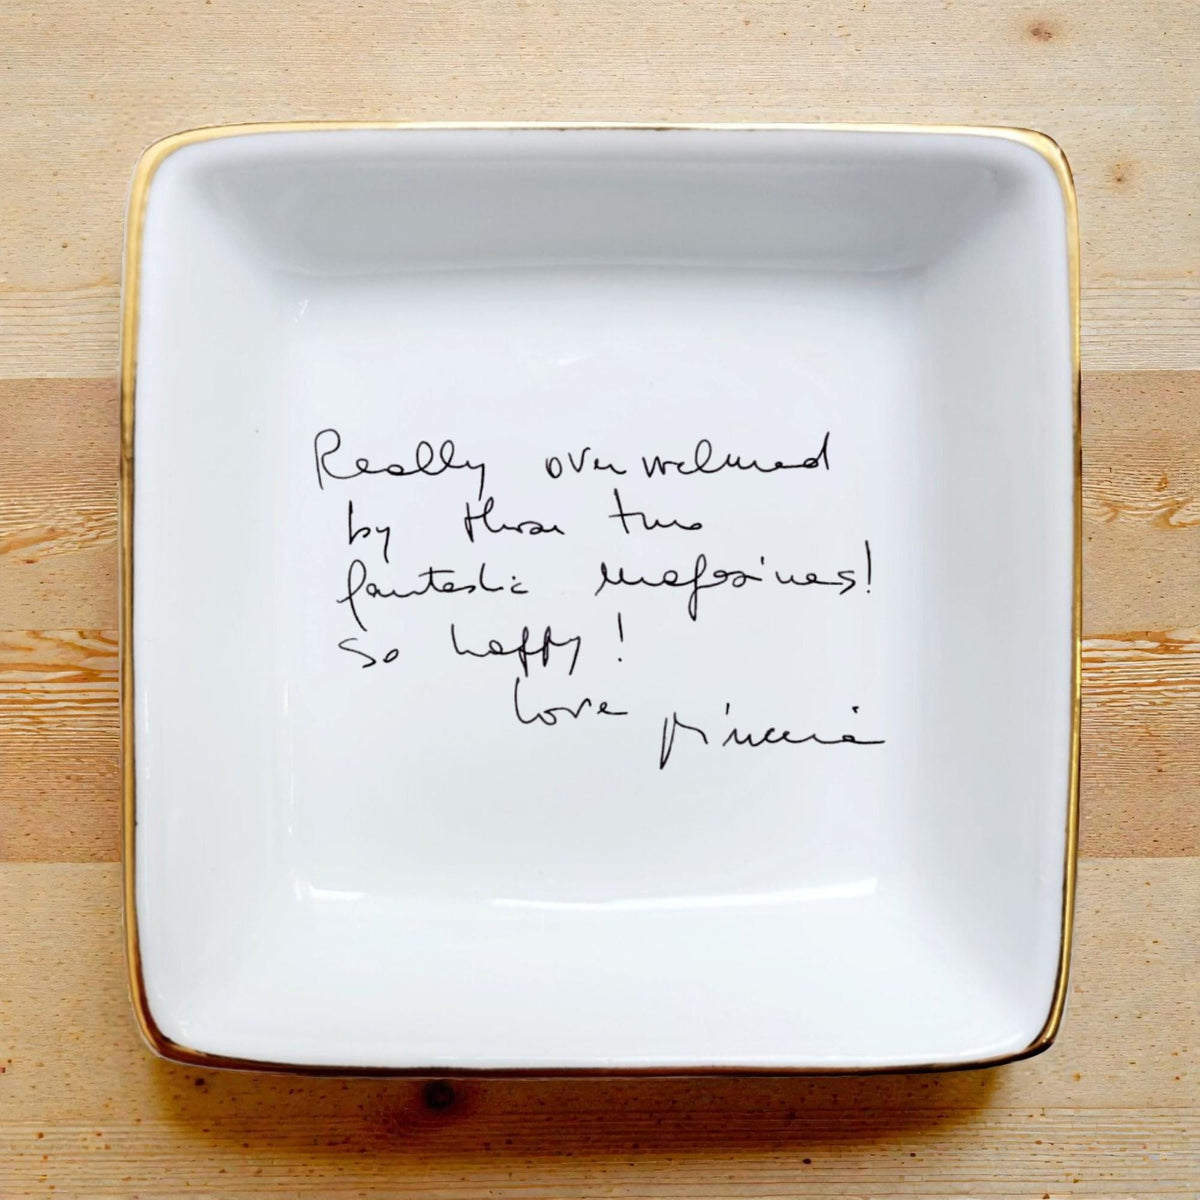 Really overwelmed
by those two
fantastic magazines!
So happy!
Love Miuccia